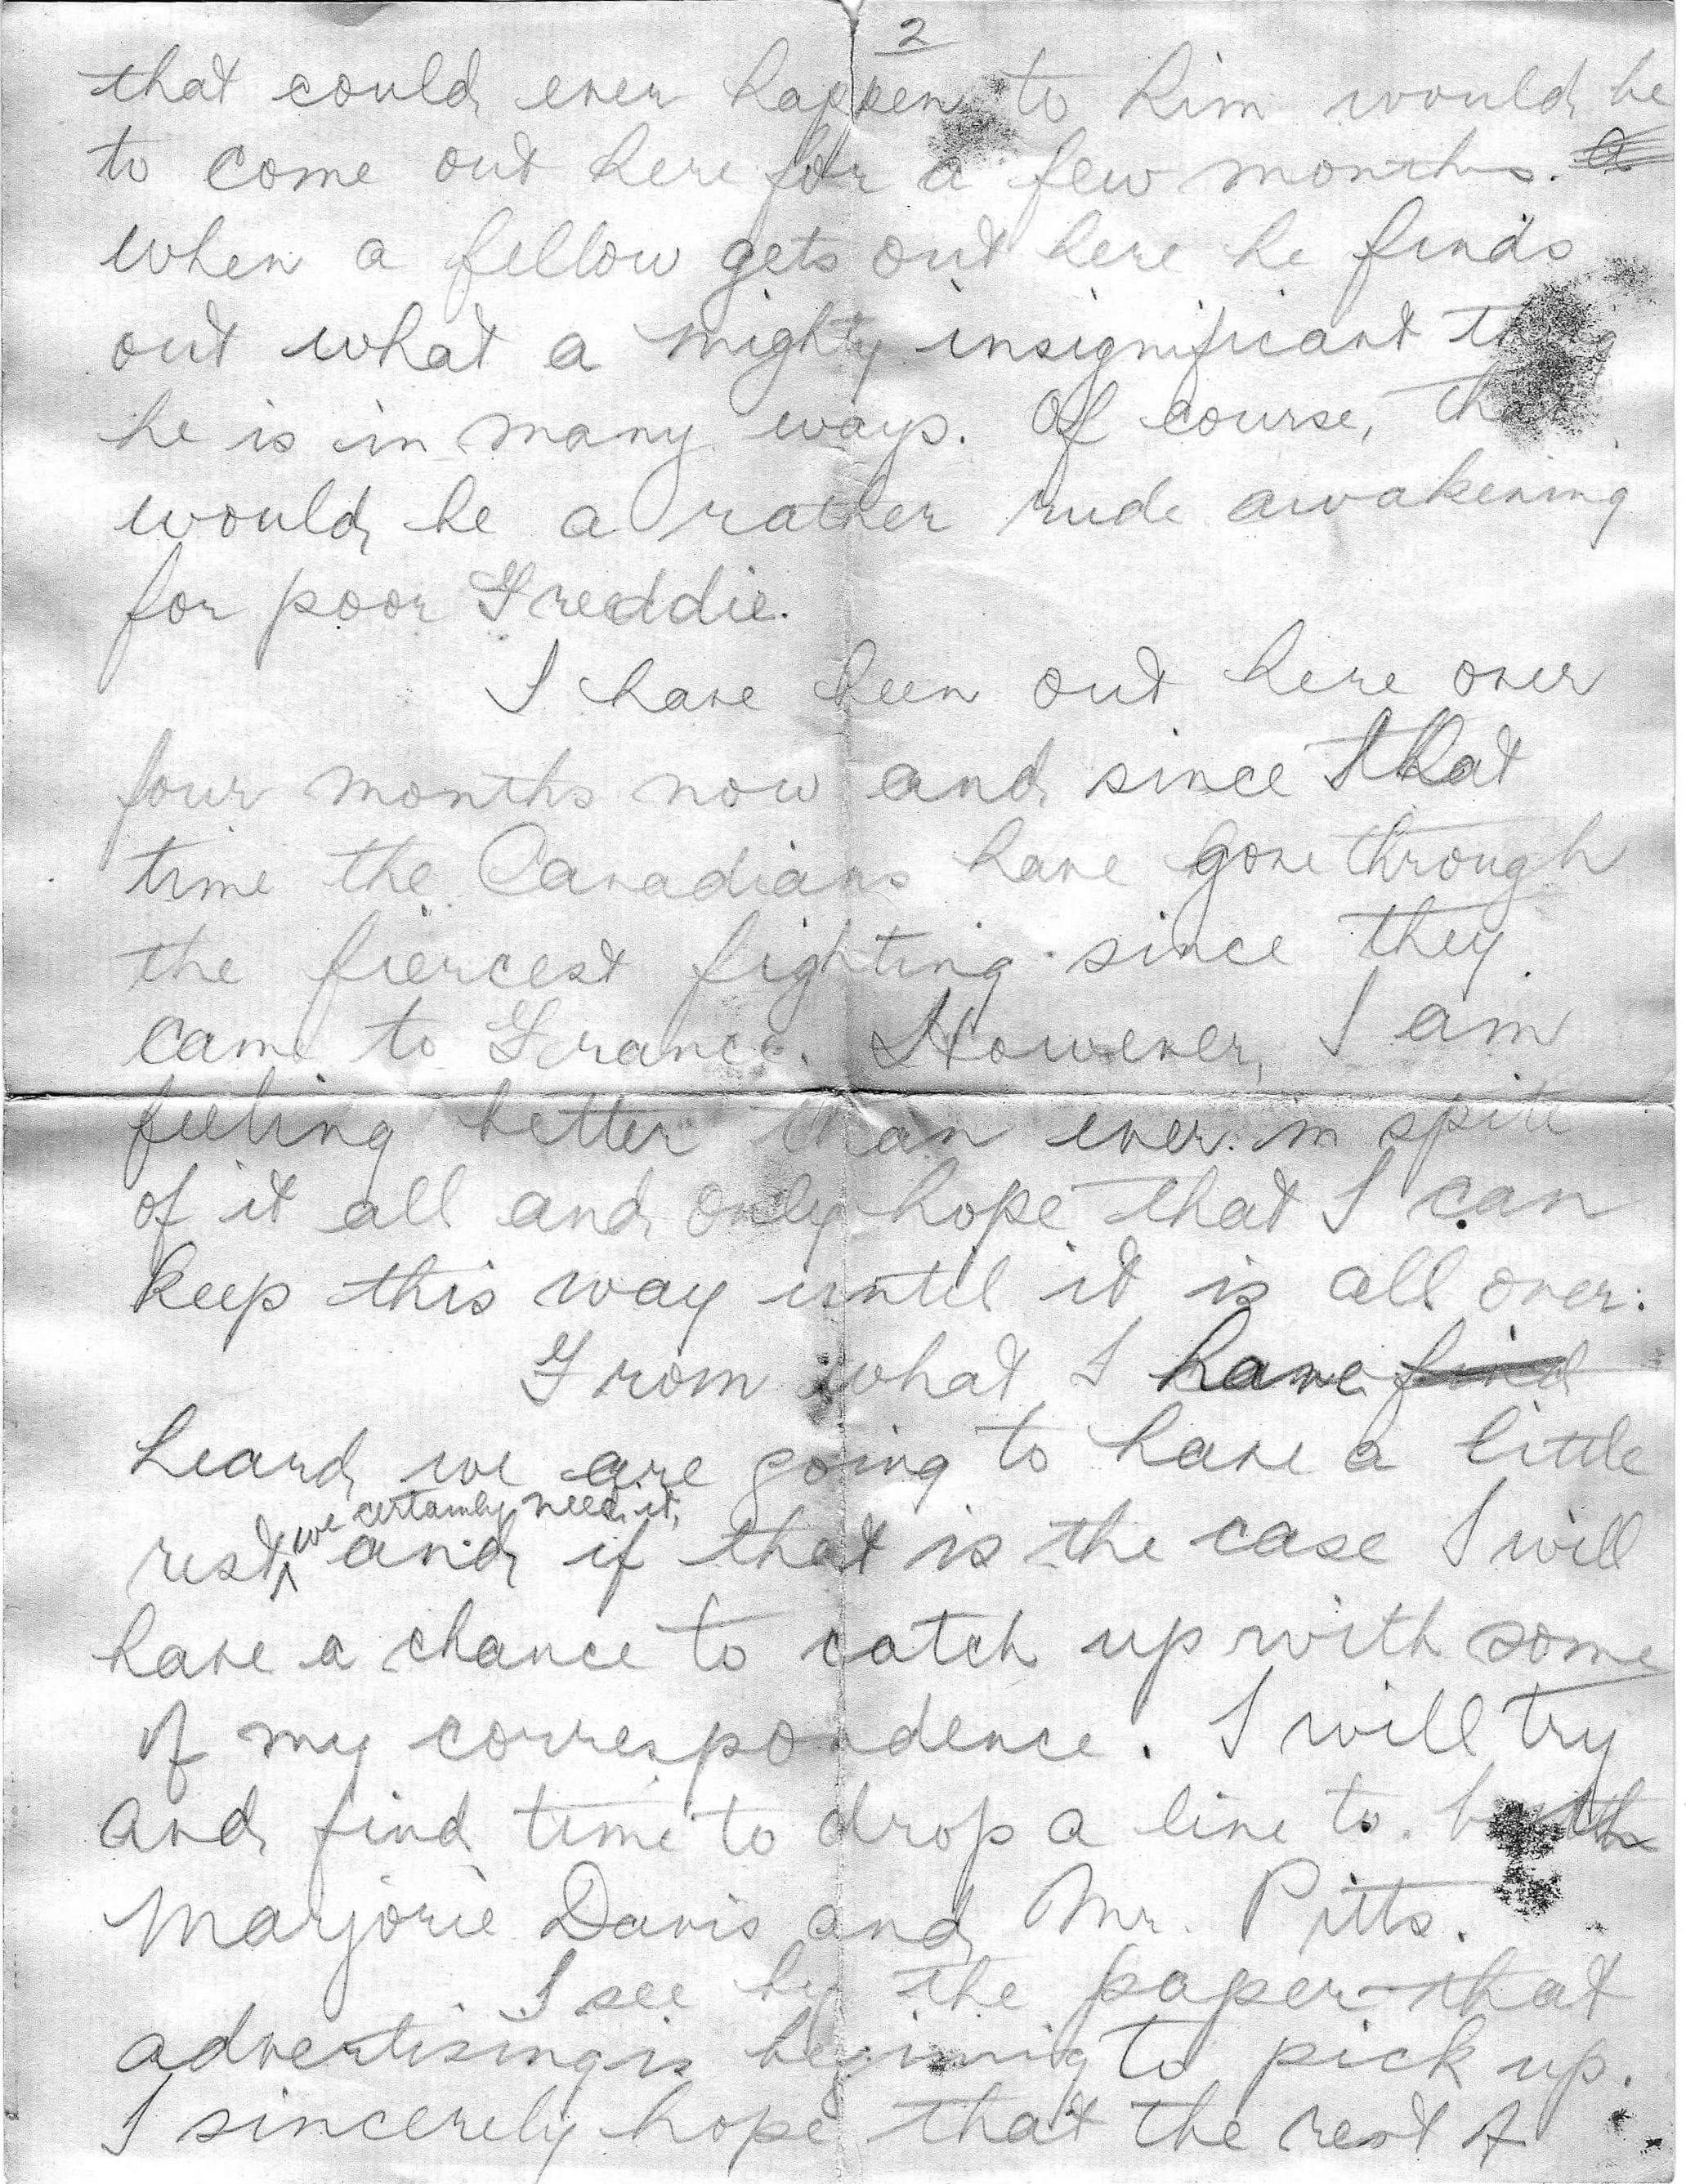 2
that could ever happen to him would be
to come out here for a few months. a
when a fellow gets out here he finds
out what a mighty insignificant thing
he is in many ways. Of course, that
would be a rather rude awakening
for poor Freddie.
I have been out here over
four months now and since that
time the Canadians have gone through
the fiercest fighting since they
came to France. However, I am
feeling better than ever in spite
of it all and only hope that I can
keep this way until it is all over.
From what I have find
heard, we are going to have a little
we certainly need it,
rest, and if that is the case I will
have a chance to catch up with some
of my correspondence. I will try
and find time to drop a line to both
Marjorie Davis and Mr. Pitts.
I see by the paper that
advertising is beginnig to pick up.
I sincerely hope that the rest of